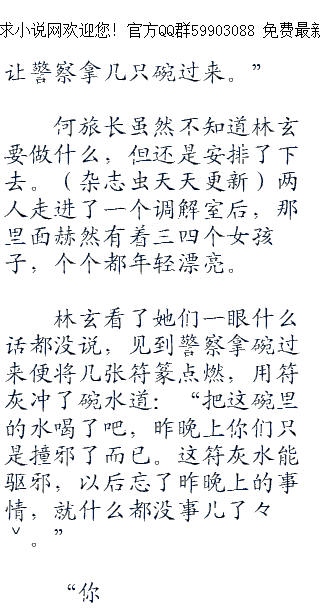 求小说网欢迎您！官方QQ群59903088 免费最新
让警察拿几只碗过来。”
何旅长虽然不知道林玄
要做什么，但还是安排了下
去。（杂志虫天天更新）两
人走进了一个调解室后，那
里面赫然有着三四个女孩
子，个个都年轻漂亮。
林玄看了她们一眼什么
话都没说，见到警察拿碗过
来便将几张符篆点燃，用符
灰冲了碗水道：“把这碗里
的水喝了吧，昨晚上你们只
是撞邪了而已。这符灰水能
驱邪，以后忘了昨晚上的事
情，就什么都没事儿了々
ˇ。”
“你